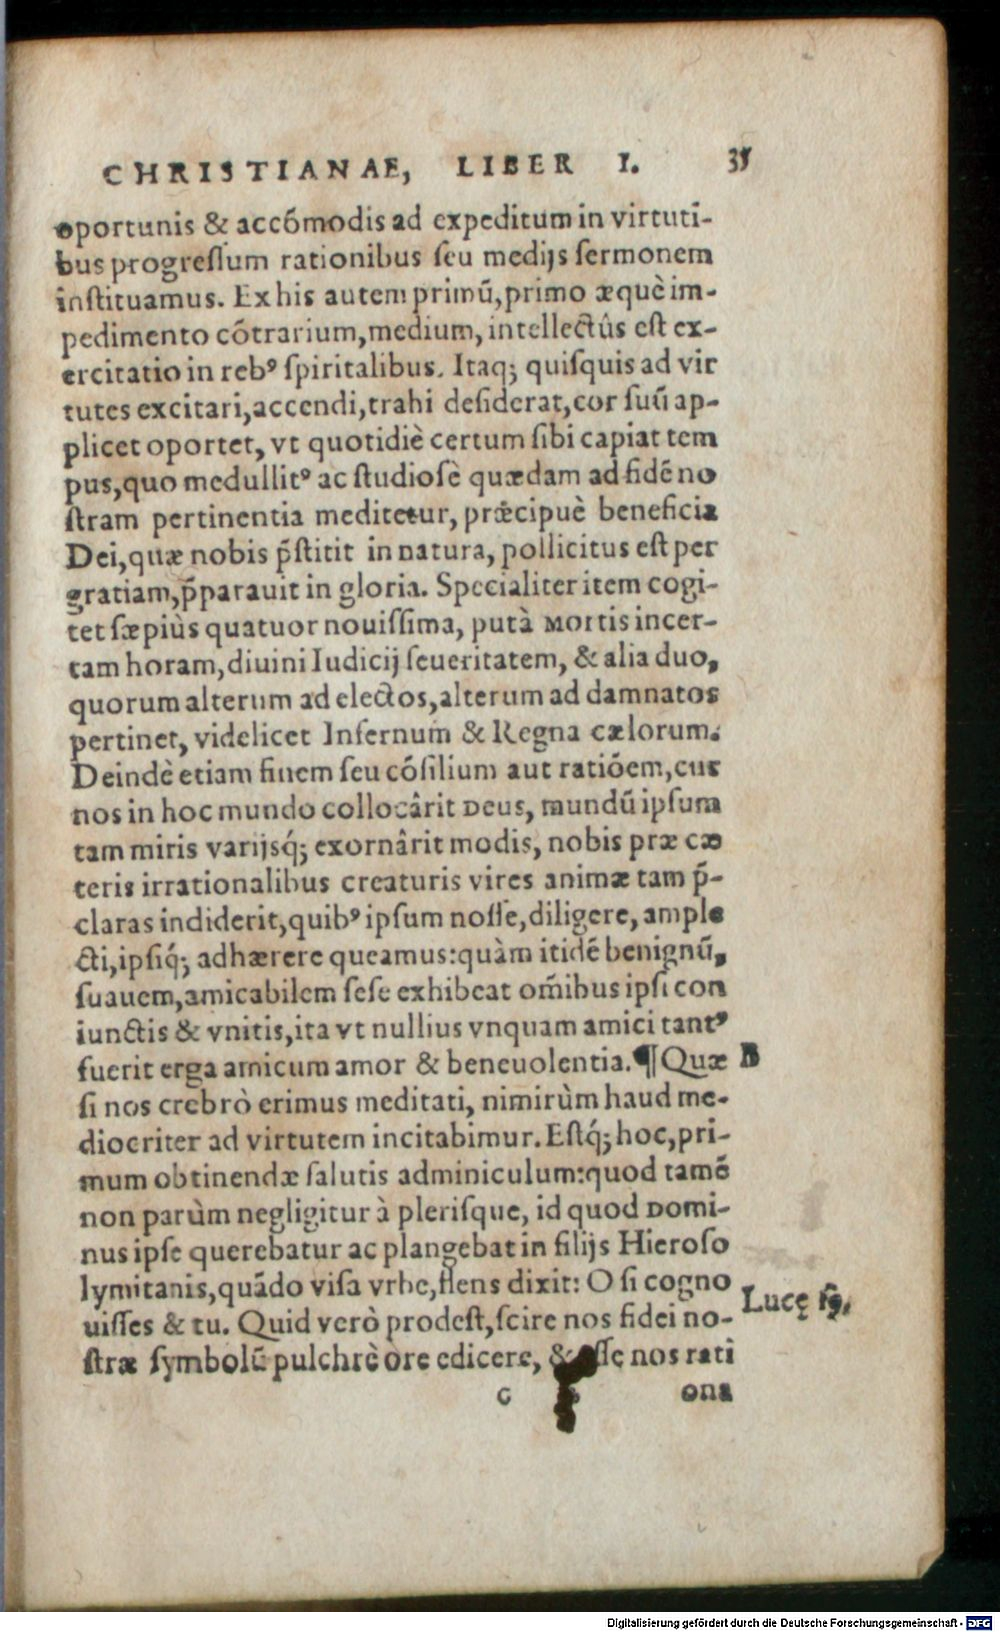 CHRISTIANAE, LIBER I. 35
oportunis & accōmodis ad expeditum in virtuti-
bus progreſſum rationibus ſeu medijs ſermonem
inſtituamus. Ex his autem primū, primo æquè im-
pedimento cōtrarium, medium, intellectûs eſt ex-
ercitatio in rebꝰ ſpiritalibus. Itaq; quiſquis ad vir
tutes excitari, accendi, trahi deſiderat, cor ſuū ap-
plicet oportet, vt quotidiè certum ſibi capiat tem
pus, quo medullitꝰ ac ſtudioſè quædam ad fidē no
ſtram pertinentia meditetur, præcipuè beneficia
Dei, quæ nobis p̄ſtitit in natura, pollicitus eſt per
gratiam, p̄parauit in gloria. Specialiter item cogi-
tet ſæpiùs quatuor nouiſſima, putà Mortis incer-
tam horam, diuini Iudicij ſeueritatem, & alia duo,
quorum alterum ad electos, alterum ad damnatos
pertinet, videlicet Infernum & Regna cælorum.
Deindè etiam finem ſeu cōſilium aut ratiōem, cur
nos in hoc mundo collocârit Deus, mundū ipſum
tam miris varijsq́; exornârit modis, nobis præ cæ
teris irrationalibus creaturis vires animæ tam p̄-
claras indiderit, quibꝰ ipſum noſſe, diligere, ample
cti, ipſiq́; adhærere queamus: quàm itidē benignū,
ſuauem, amicabilem ſeſe exhibeat om̄ibus ipſi con
iunctis & vnitis, ita vt nullius vnquam amici tantꝰ
fuerit erga amicum amor & beneuolentia. ¶ Quæ B
ſi nos crebrò erimus meditati, nimirùm haud me-
diocriter ad virtutem incitabimur. Eſtq́; hoc, pri-
mum obtinendæ ſalutis adminiculum: quod tamē
non parùm negligitur à pleriſque, id quod Domi-
nus ipſe querebatur ac plangebat in filijs Hieroſo
lymitanis, quādo viſa vrbe, flens dixit: O ſi cogno
uiſſes & tu. Quid verò prodeſt, ſcire nos fidei no-
Lucę
ſtræ ſymbolū pulchrè ore edicere, & eſſe nos rati
c
ona
Digitalisierung gefördert durch die Deutsche Forschungsgemeinschaft - DFG